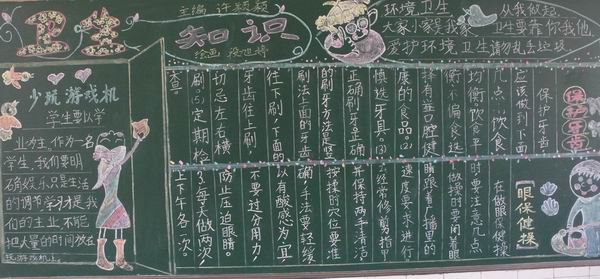 卫生
知识
主编 许颖颖
绘画
环境卫生 从我做起,
大家小家是我家 卫生要靠你我他,
爱护环境卫生请勿乱丢垃圾
少玩游戏机
学生要以学
业为主,作为一名
学生,我们要明
确娱乐只是生活
的调节学习才是我
们的主业,不能
把大量的时间放在
玩游戏机上。
保护牙齿
保护牙齿
应该做到下面
几点:饮食
均衡饮食平
衡,不偏食选
择有益口腔健
康的食品(2)
慎选牙具,(3)
正确刷牙正确
的刷牙方法是竖
刷法上面的牙齿
往下刷,下面的
牙齿往上刷
切忌左右横
刷。(5)定期检
查。
眼保健操
在做眼保健操
时要注意几点
做操时要闭着眼
跟着广播里的
速度要求进行
经常修剪指甲
并保持两手清洁
按揉时穴位要准
确,手法要轻缓
以有酸感为宜,
不要过分用力
防止压迫眼睛。
3每天做两次,
上下午各一次。